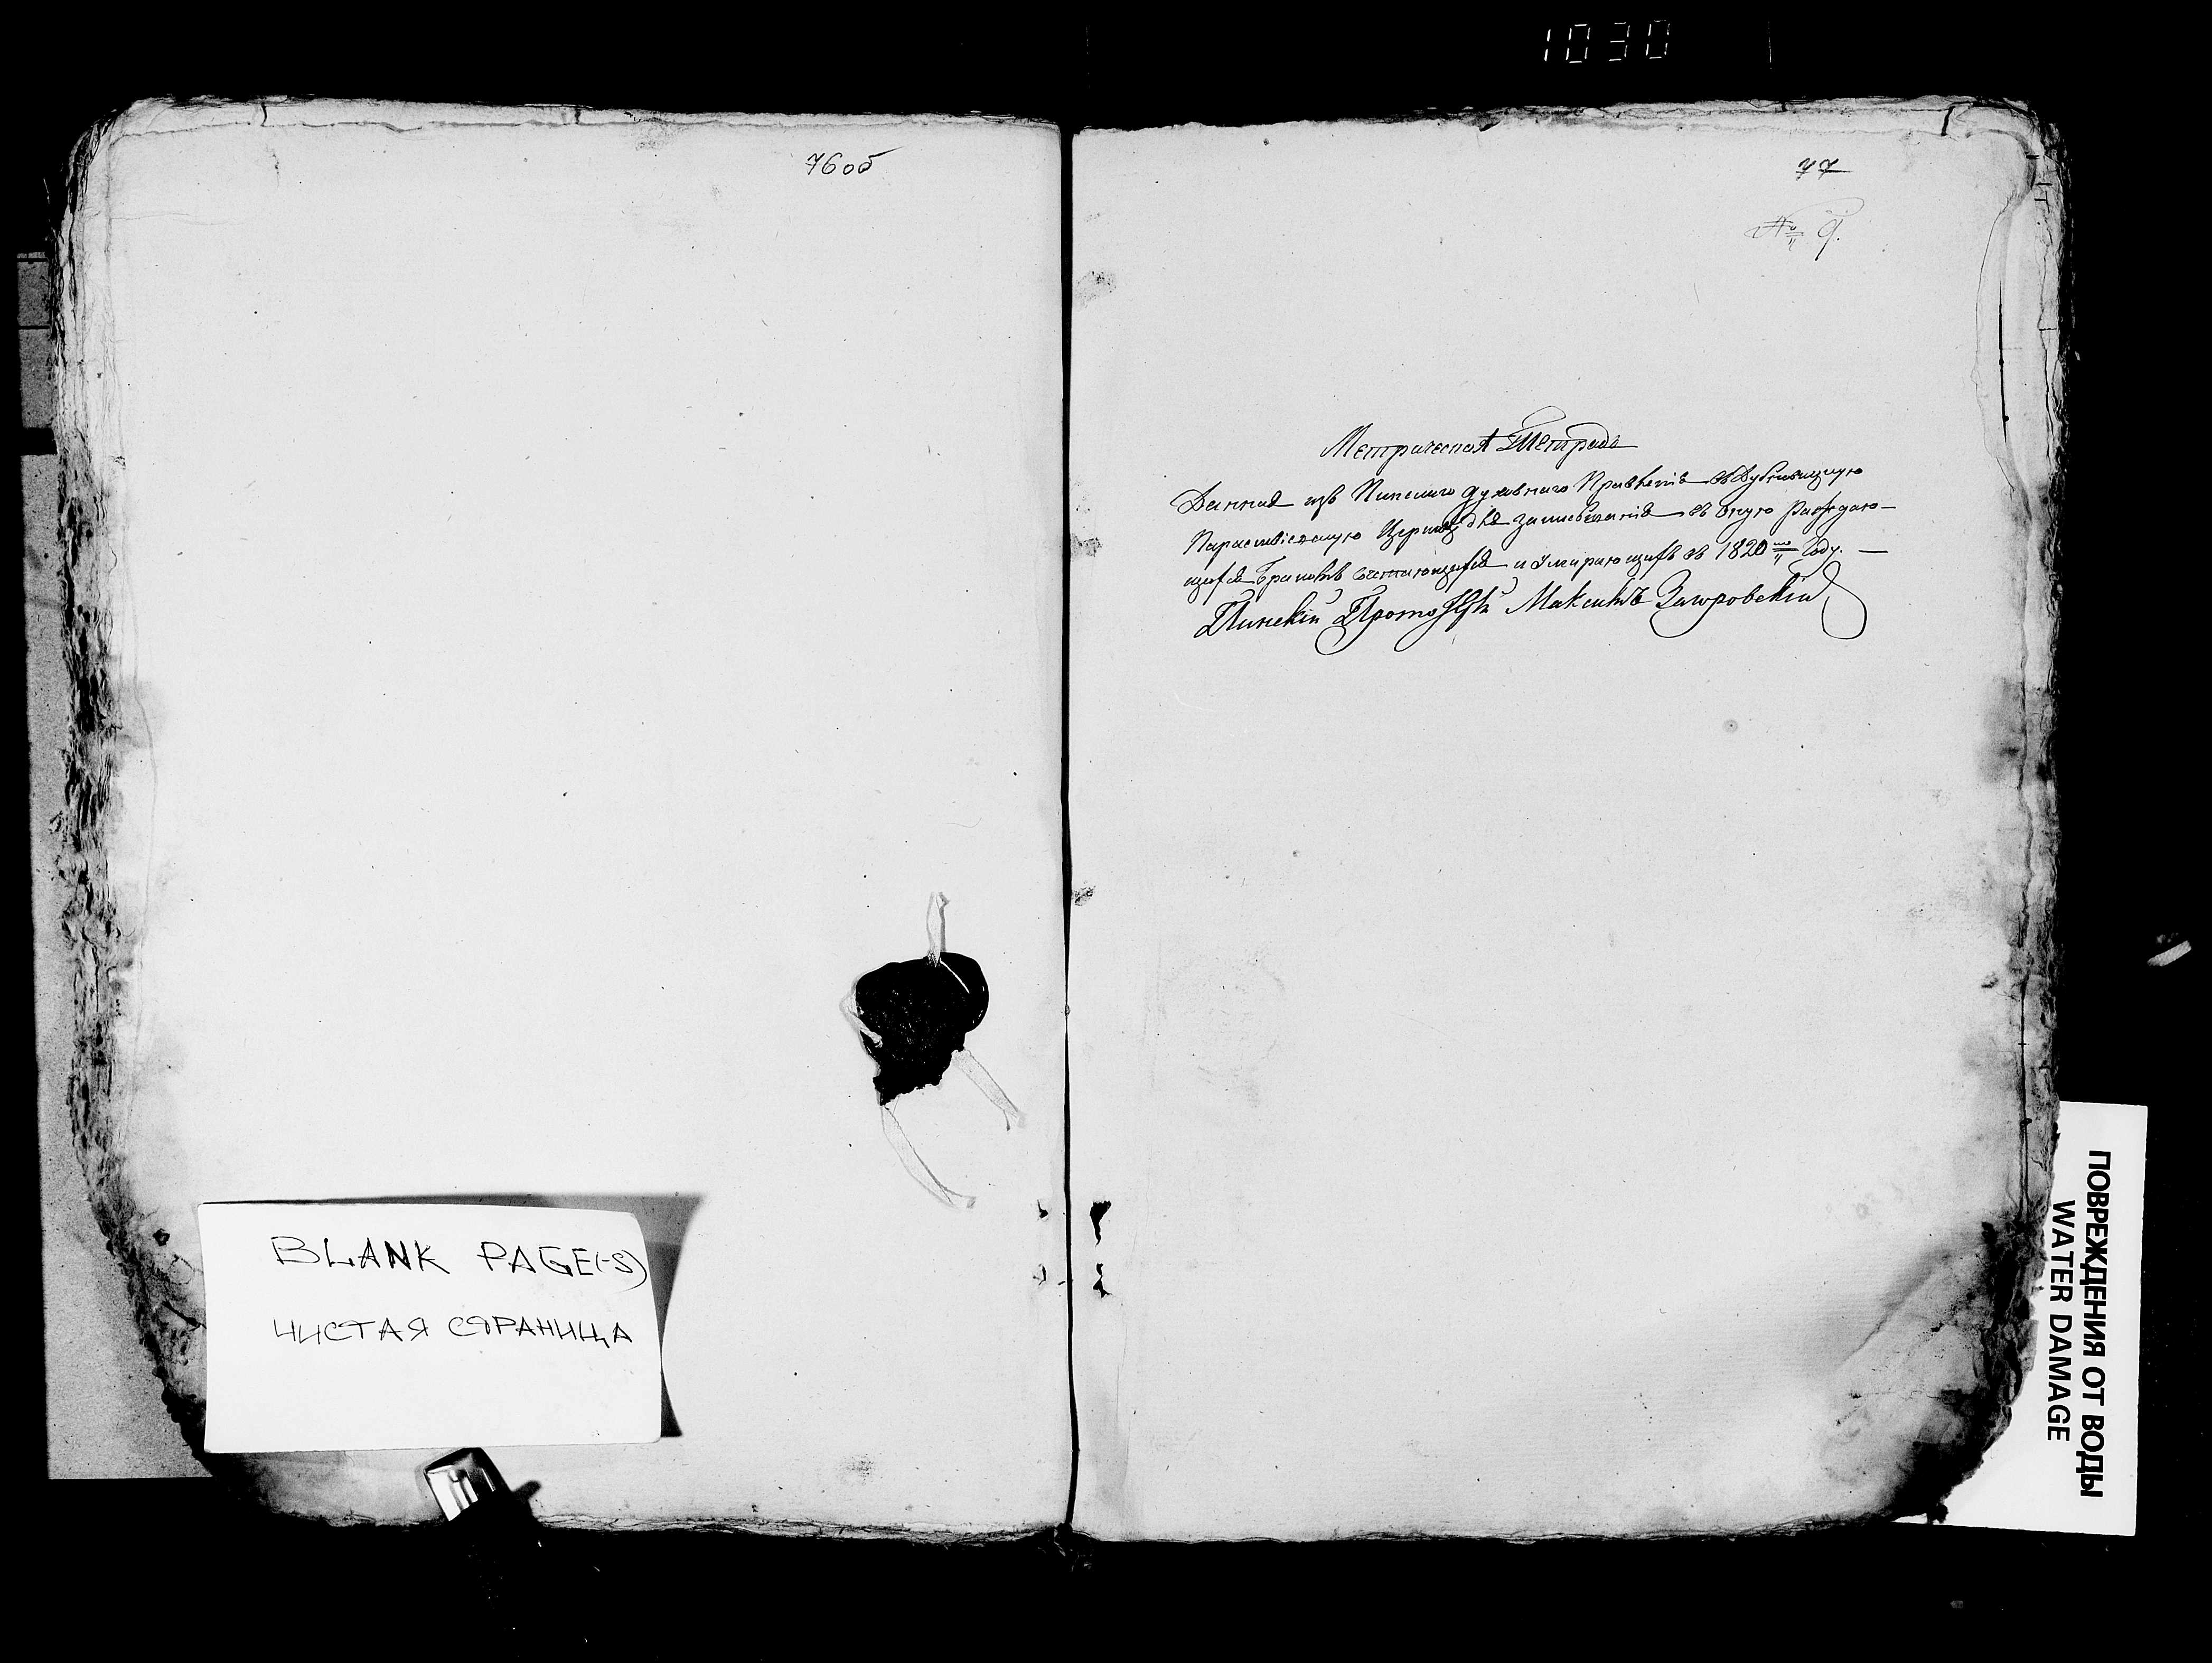 1030
76 об
77
№ 9.
Метрическая Тетрадь
Данная изъ Пинскаго духовнаго Правленія въ Дубновицкую
Параскевіевскую Церковь для записыванія въ оную рождаю-
щихся Бракомъ сочетающихся и умирающихъ въ 1820му Году. —
Пинскій Протоіерей Максимъ
BLANK PAGE(-S)
ЧИСТАЯ СТРАНИЦА
ПОВРЕЖДЕНИЯ ОТ ВОДЫ
WATER DAMAGE